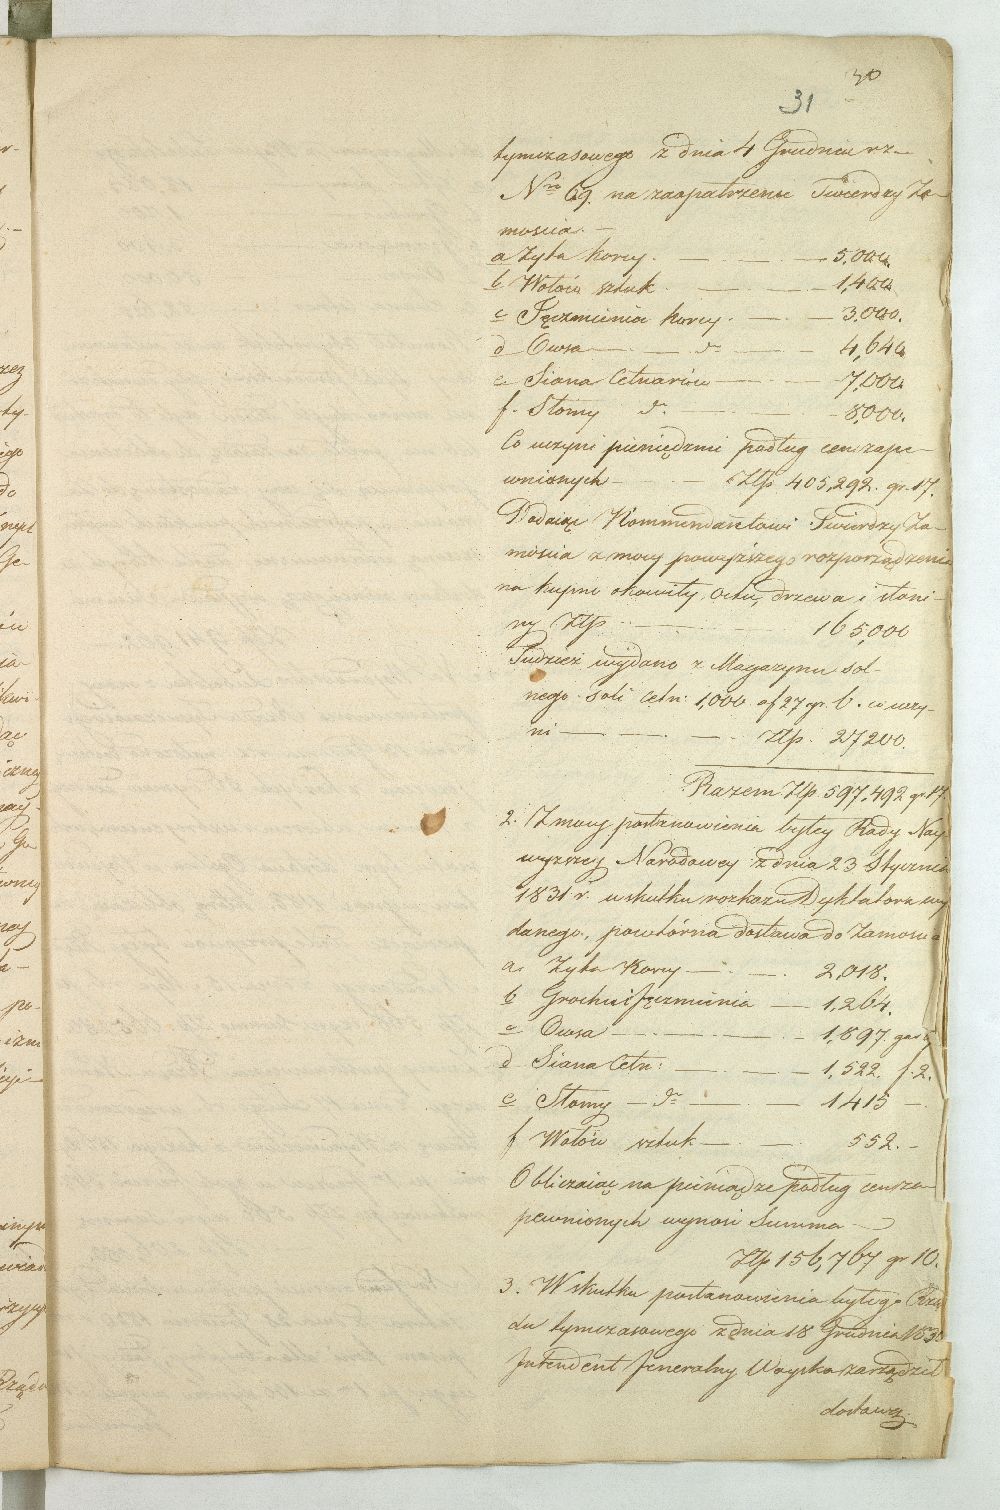 30
31
tymczasowego z dnia 4 Grudnia rz–
Nro 69. na zaopatrzenie Twierdzy Za–
mościa. –
a Żyta korcy. — — — 5,000.
b Wołów sztuk. — — — 1,400.
c Jęczmienia korcy. — — 3,000.
d Owsa — — do — — 4,640
e Siana Cetnarów — — — 7,000
f. Słomy do. — — — 8,000.
Co uczyni pieniędzmi podług cen zape–
wnionych — — — Złp 405,292. gr. 17.
Dodaiąc Kommendantowi Twierdzy Za–
mościa z mocy powyższego rozporządzenia
na kupno okowity, Octu, drzewa i słoni–
ny Złp — — — 165,000
Tudzież wydano z Magazynu sol–
nego soli Cetn: 1,000 af 27 gr. 6. co uczy–
ni — — — — Złp. 27200.
Razem Złp 597,492 gr. 17.
2. Z mocy postanowienia byłey Rady Nay
wyższey Narodowey z dnia 23 Stycznia
1831 r. w skutku rozkazu Dyktatora wy
danego, powtórna dostawa do Zamościa
a. Żyta Korcy — — — 2,018.
b Grochu i Jęczmienia — 1,264.
c Owsa — — — — 1,897. gar 6
d Siana Cetn: — — — 1,522. f. 2.
e Słomy — do — — 1415 —
f Wołów sztuk — — 552. –
Obliczaiąc na pieniądze podług cen za–
pewnionych wynosi Summa —
Złp 156,767 gr 10.
3. W skutku postanowienia byłego Rzą
du tymczasowego z dnia 18 Grudnia 1830
Intendent Jeneralny Woyska zarządził
dostawę